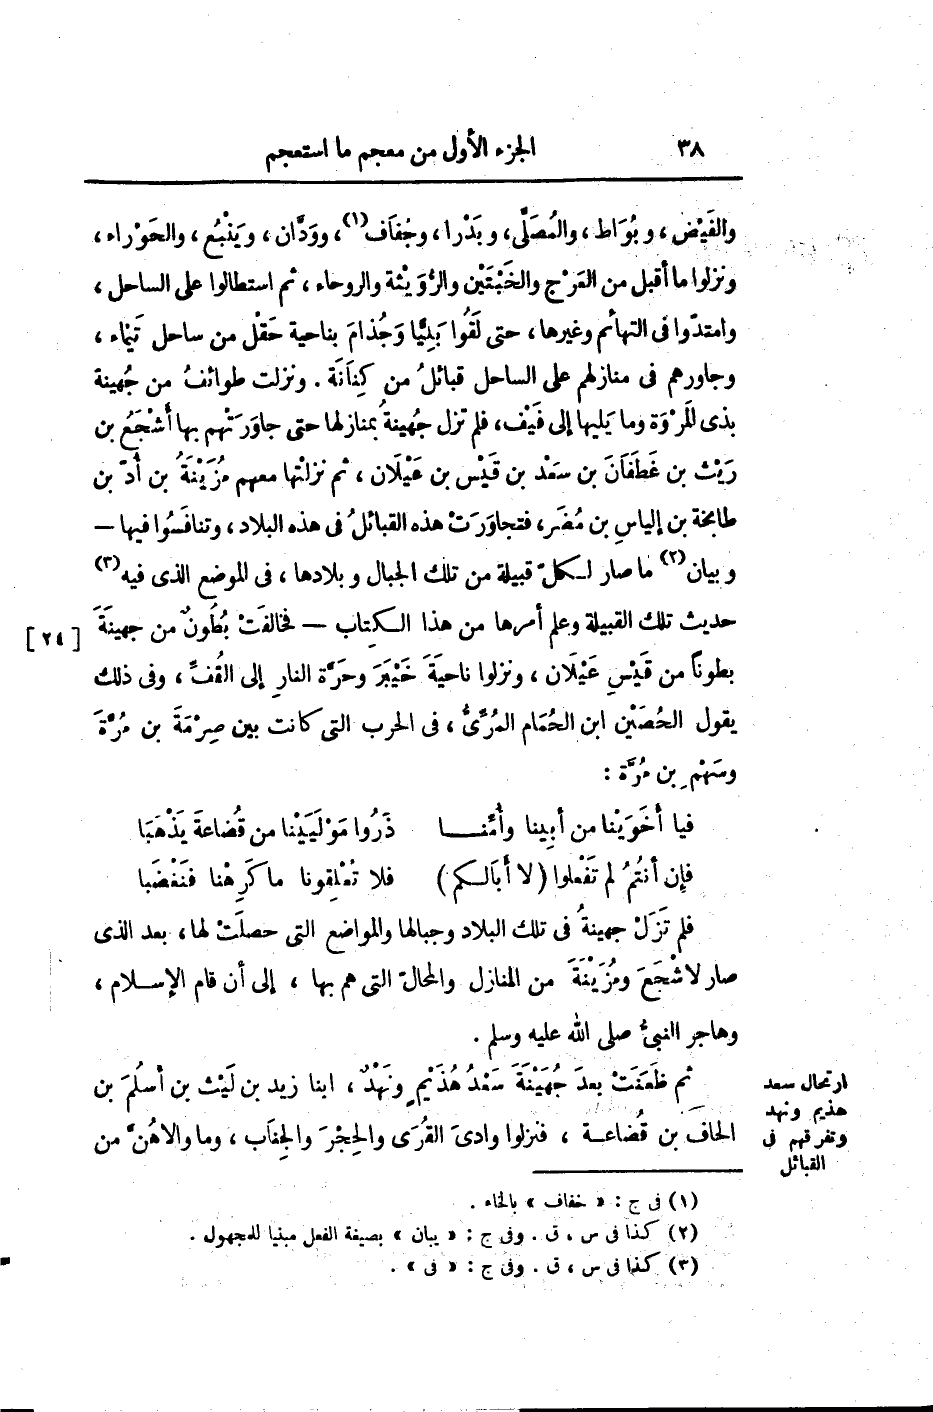 ٣٨
الجزء الأول من معجم ما استعجم
والفَيْض، وبُوَاط، والمُصَلَّى، وبَدْرا، وجُفاَف(١)، ووَدَّان، ويَنْبُع، والحَوْراء،
ونزلوا ما أقبل من العَرْج والخَبْتَيْن والرُّوَيْثة والروحاء، ثم استطالوا على الساحل،
وامتدّوا فى التهائم وغيرها، حتى لَقُوا بَلِيًّا وَجُذامَ بناحية حَقْل من ساحل تَيْماء،
وجاورهم فى منازلهم على الساحل قبائلُ من كِناَنَة. ونزلت طوائفُ من جُهينة
بذى المَرْوَة وما يَليها إلى فَيْف، فلم تزل جُهينةُ بمنازلها حتى جاوَرَتْهم بها أَشْجَعُ بن
رَيْث بن غَطَفَانَ بن سعَدْ بن قَيْس بن عَيْلَان، ثم نزلتْها معهم مُزَيْنَةُ بن أُدّ بن
طابخة بن إلياسِ بن مُضَر، فتجاوَرَتْ هذه القبائلُ فى هذه البلاد، وتنافَسُوا فيها —
وبيان(٢) ما صار لـكلّ قبيلة من تلك الجبال وبلادها، فى الموضع الذى فيه(٣)
حديث تلك القبيلة وعلم أمرها من هذا الـكتاب — فخالفَتْ بُطُونٌ من جهينَةَ
[٢٤]
بطوناً من قَيْسِ عَيْلَان، ونزلوا ناحيَةَ خَيْبَرَ وحَرَّة النارِ إلى القُفِّ، وفى ذلك
يقول الحُصَيْن ابن الحُمَام المُرِّىُّ، فى الحرب التى كانت بين صِرْمَةَ بن مُرَّةَ
وسَهْمِ بن مُرَّة:
فيا أَخَوَيْنا من أَبِينا وأُمِّنــا ذَرُوا مَوْلَيَيْنا من قُضاعةَ يَذْهَبَا
فإن أنتُمُ لم تَفْعلوا (لا أَبَالـكم) فلا تُعْلِقونا ما كَرِهْنا فنَغْضَبا
فلم تَزَلْ جهينةُ فى تلك البلاد وجبالها والمواضع التى حصلَتْ لها، بعد الذى
صار لأشْجَعَ ومُزَيْنَةَ من المنازل والمحالّ التى هم بها، إلى أن قام الإسـلام،
وهاجر النبىُّ صلى الله عليه وسلم.
ارتحال سعد
هذيم ونهد
وتفرقهم فى
القبائل
ثم ظَعَنَتْ بعدَ جُهَيْنَةَ سَعْدُ هُذَيْمٍ ونَهْدٌ، ابنا زيد بن لَيْث بن أَسلُمَ بن
الحافِ بن قُضاعـة، فنزلوا وادىَ القُرَى والحِجْرَ والجِنابَ، وما والاهُنَّ من
(١) فى ج: «خفاف» بالخاء.
(٢) كذا فى س، ق. وفى ج: «يبان» بصيغة الفعل مبنيا للمجهول.
(٣) كذا فى س، ق. وفى ج: «فى».